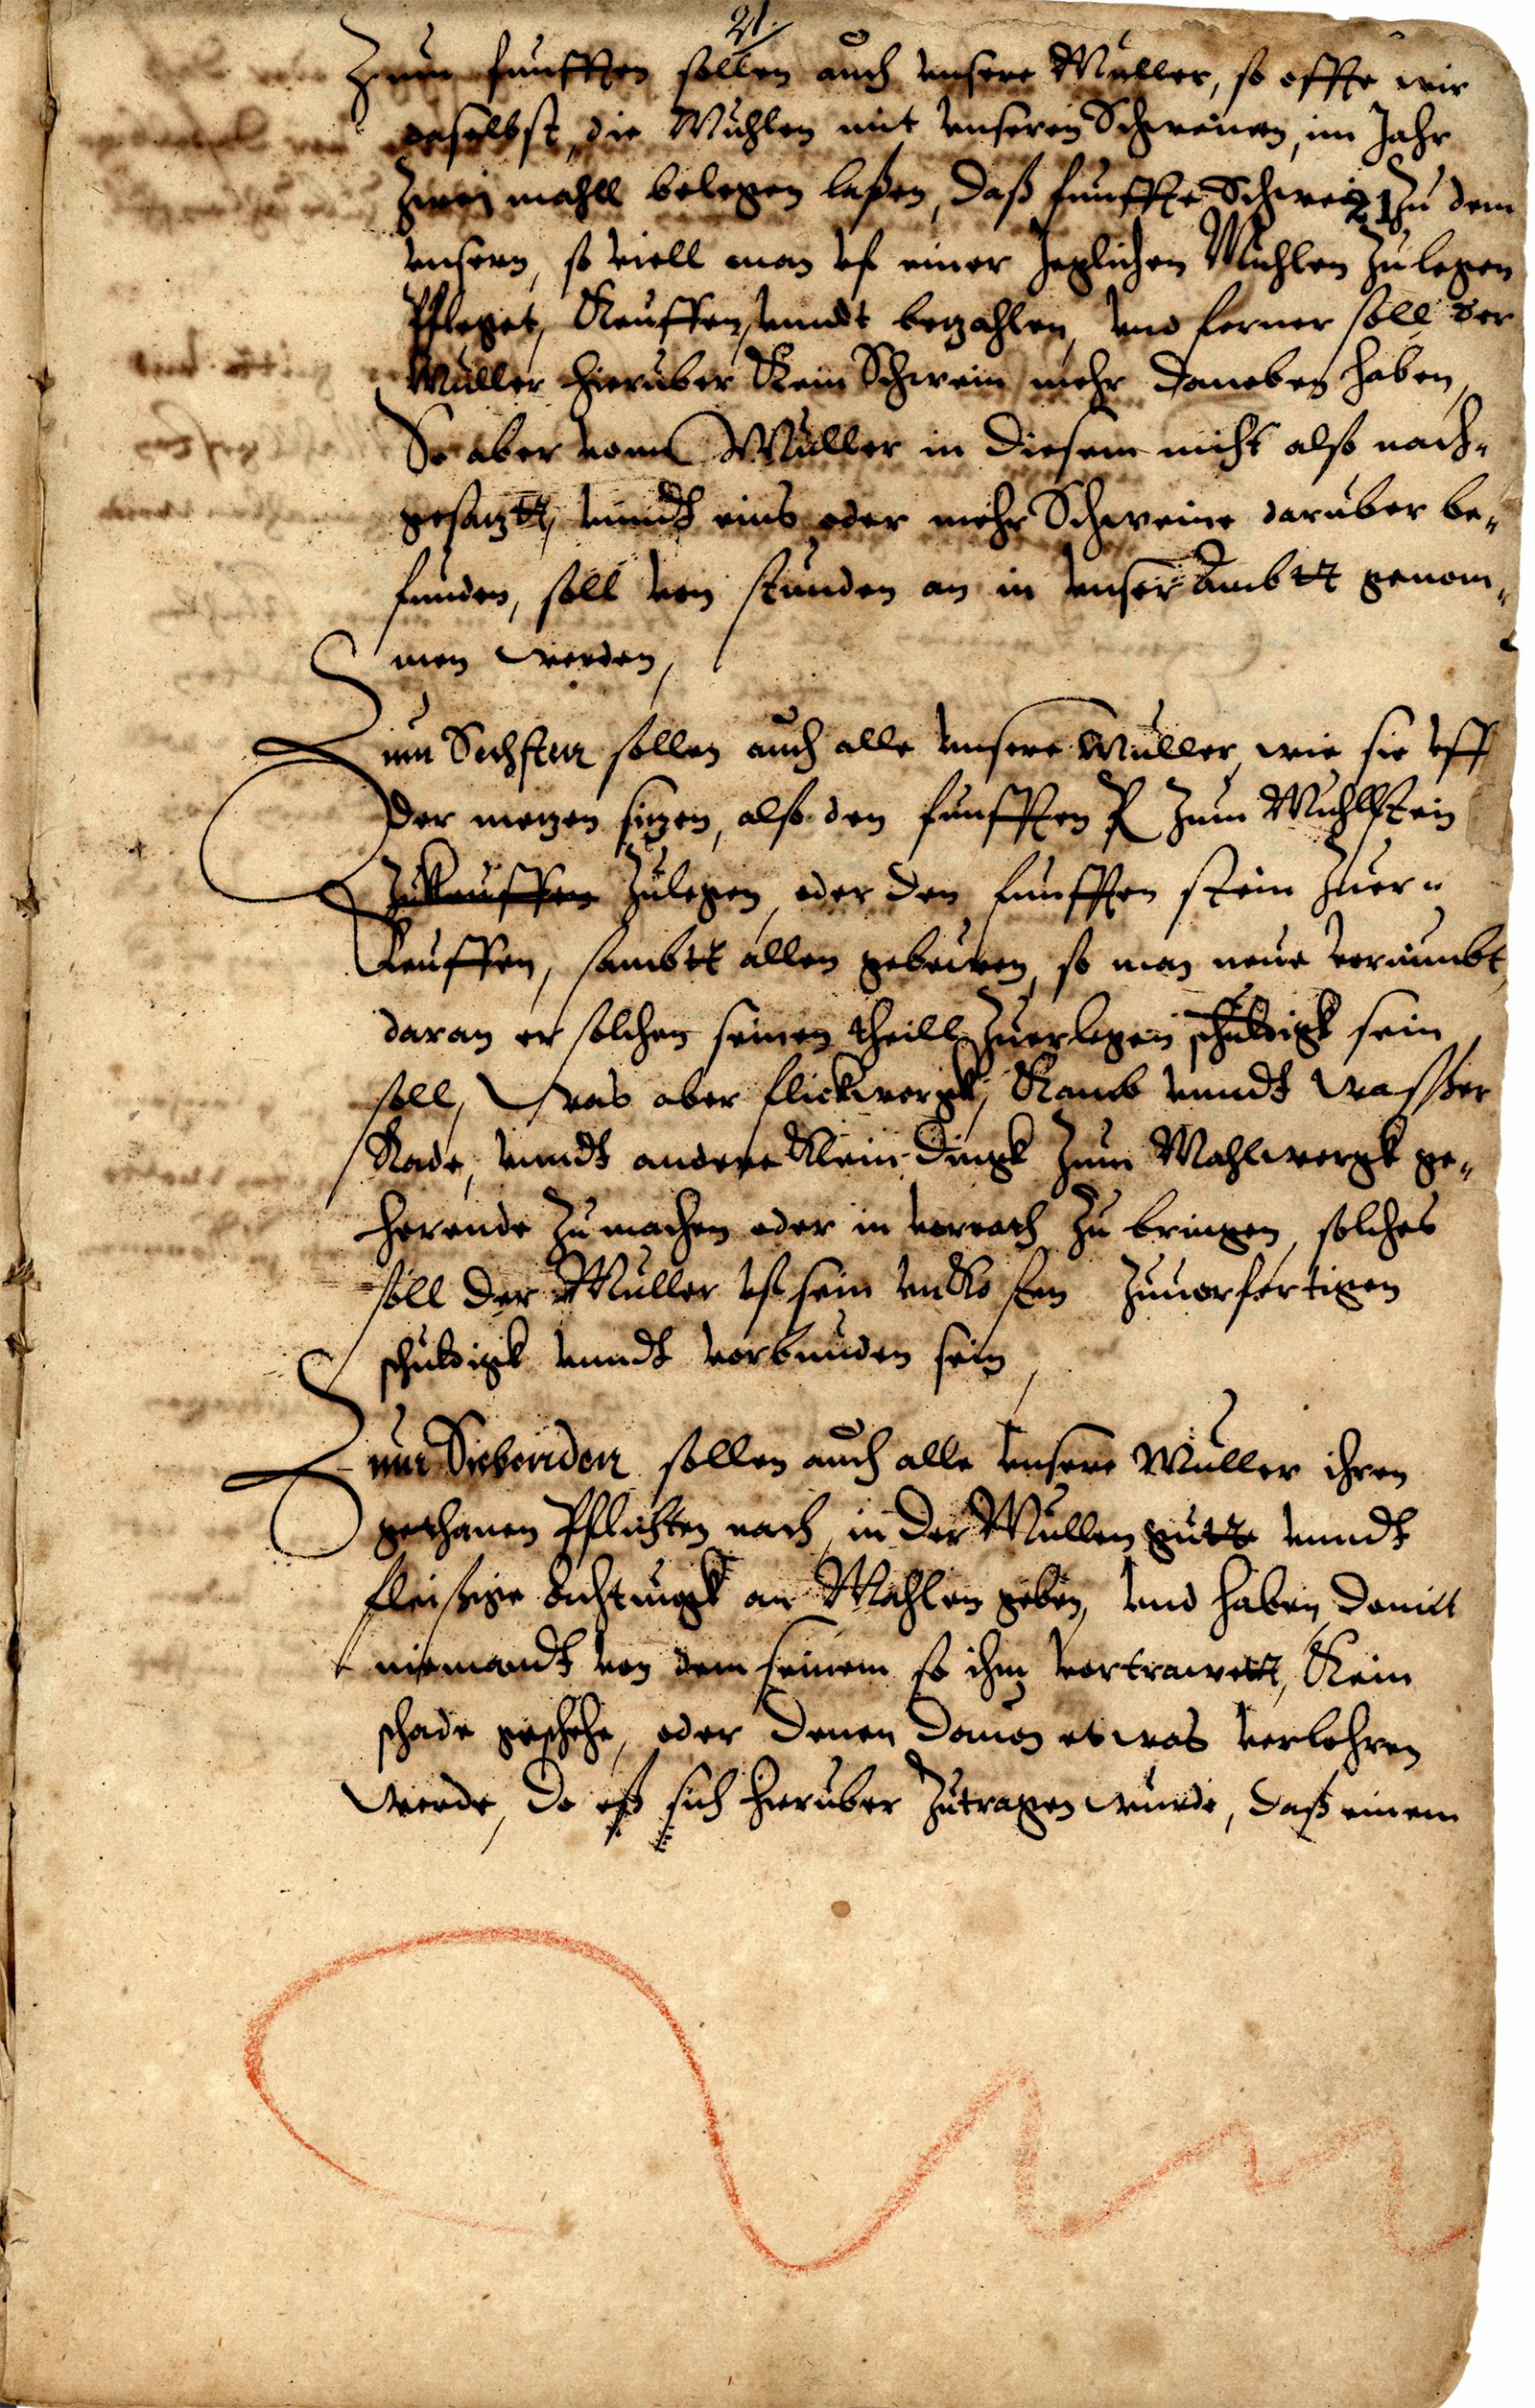 21.
Zum funfften sollen auch vnsere Muller, so offte wir
daselbst, die Muhlen mit vnseren Schweinen, im Jahr
Zwei mahll belegen laßen, daß funffte Schwein Zu dem
21
vnsern, so viell man vf einer Jeglichen Muhlen Zu legen
Pfleget, Keuffen, vnndt bezahlen, vnd ferner soll der
Muller hieruber Kein Schwein mehr daneben haben,
So aber vom Muller in diesem nicht also nach-
gesatztt, vnndt eins oder mehr Schweine daruber be-
funden, soll von stunden an in vnser Ambtt genom-
men werden,
Zum Sechsten sollen auch alle vnsere Muller, wie sie vff
der metzen sitzen, alß den funfften Zum Muhlstein
Zukeuffen Zulegen, oder den funfften stein Zuer-
Keuffen, sambtt allen gebewen, so man neue
daran er solchen seinen theill Zuerlegen schuldigk sein
soll, Was aber flickwergk, Kamb vnndt Waßer
Rade, vnndt andere Klein dingk Zum Mahlwergk ge-
horende Zu machen oder in vorrath Zu bringen, solches
soll der Muller vf sein vnkosten Zuuorfertigen
schuldigk vnndt vorbunden sein,
Zum Siebenden sollen auch alle vnsere Muller ihren
gethanen Pflichten nach, in der Mullen gutte vnndt
fleißige Achtungk an Mahlen geben, vnd haben, damitt
niemandt von dem seinem so ihm vortrawett, Kein
schade geschehe, oder denen dauon etwas verlohren
werde, Do eß sich hieruber Zutragen wurde, daß einem